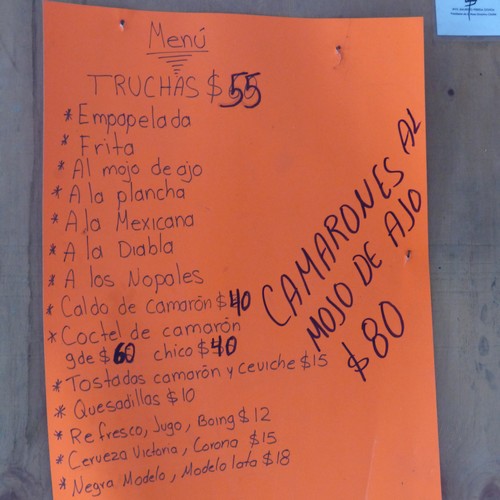 Menú
TRUCHAS $55
* Empapelada
* Frita
* Al mojo de ajo
* A la plancha
* A la Mexicana
* A la Diabla
* A los Nopales
* Caldo de camarón $40
* Coctel de camarón
gde $60 chico $40
* Tostadas camarón y ceviche $15
* Quesadillas $10
* Refresco, Jugo, Boing $12
* Cerveza Victoria, Corona $15
* Negra Modelo, Modelo lata $18
CAMARONES AL
MOJO DE AJO
$80